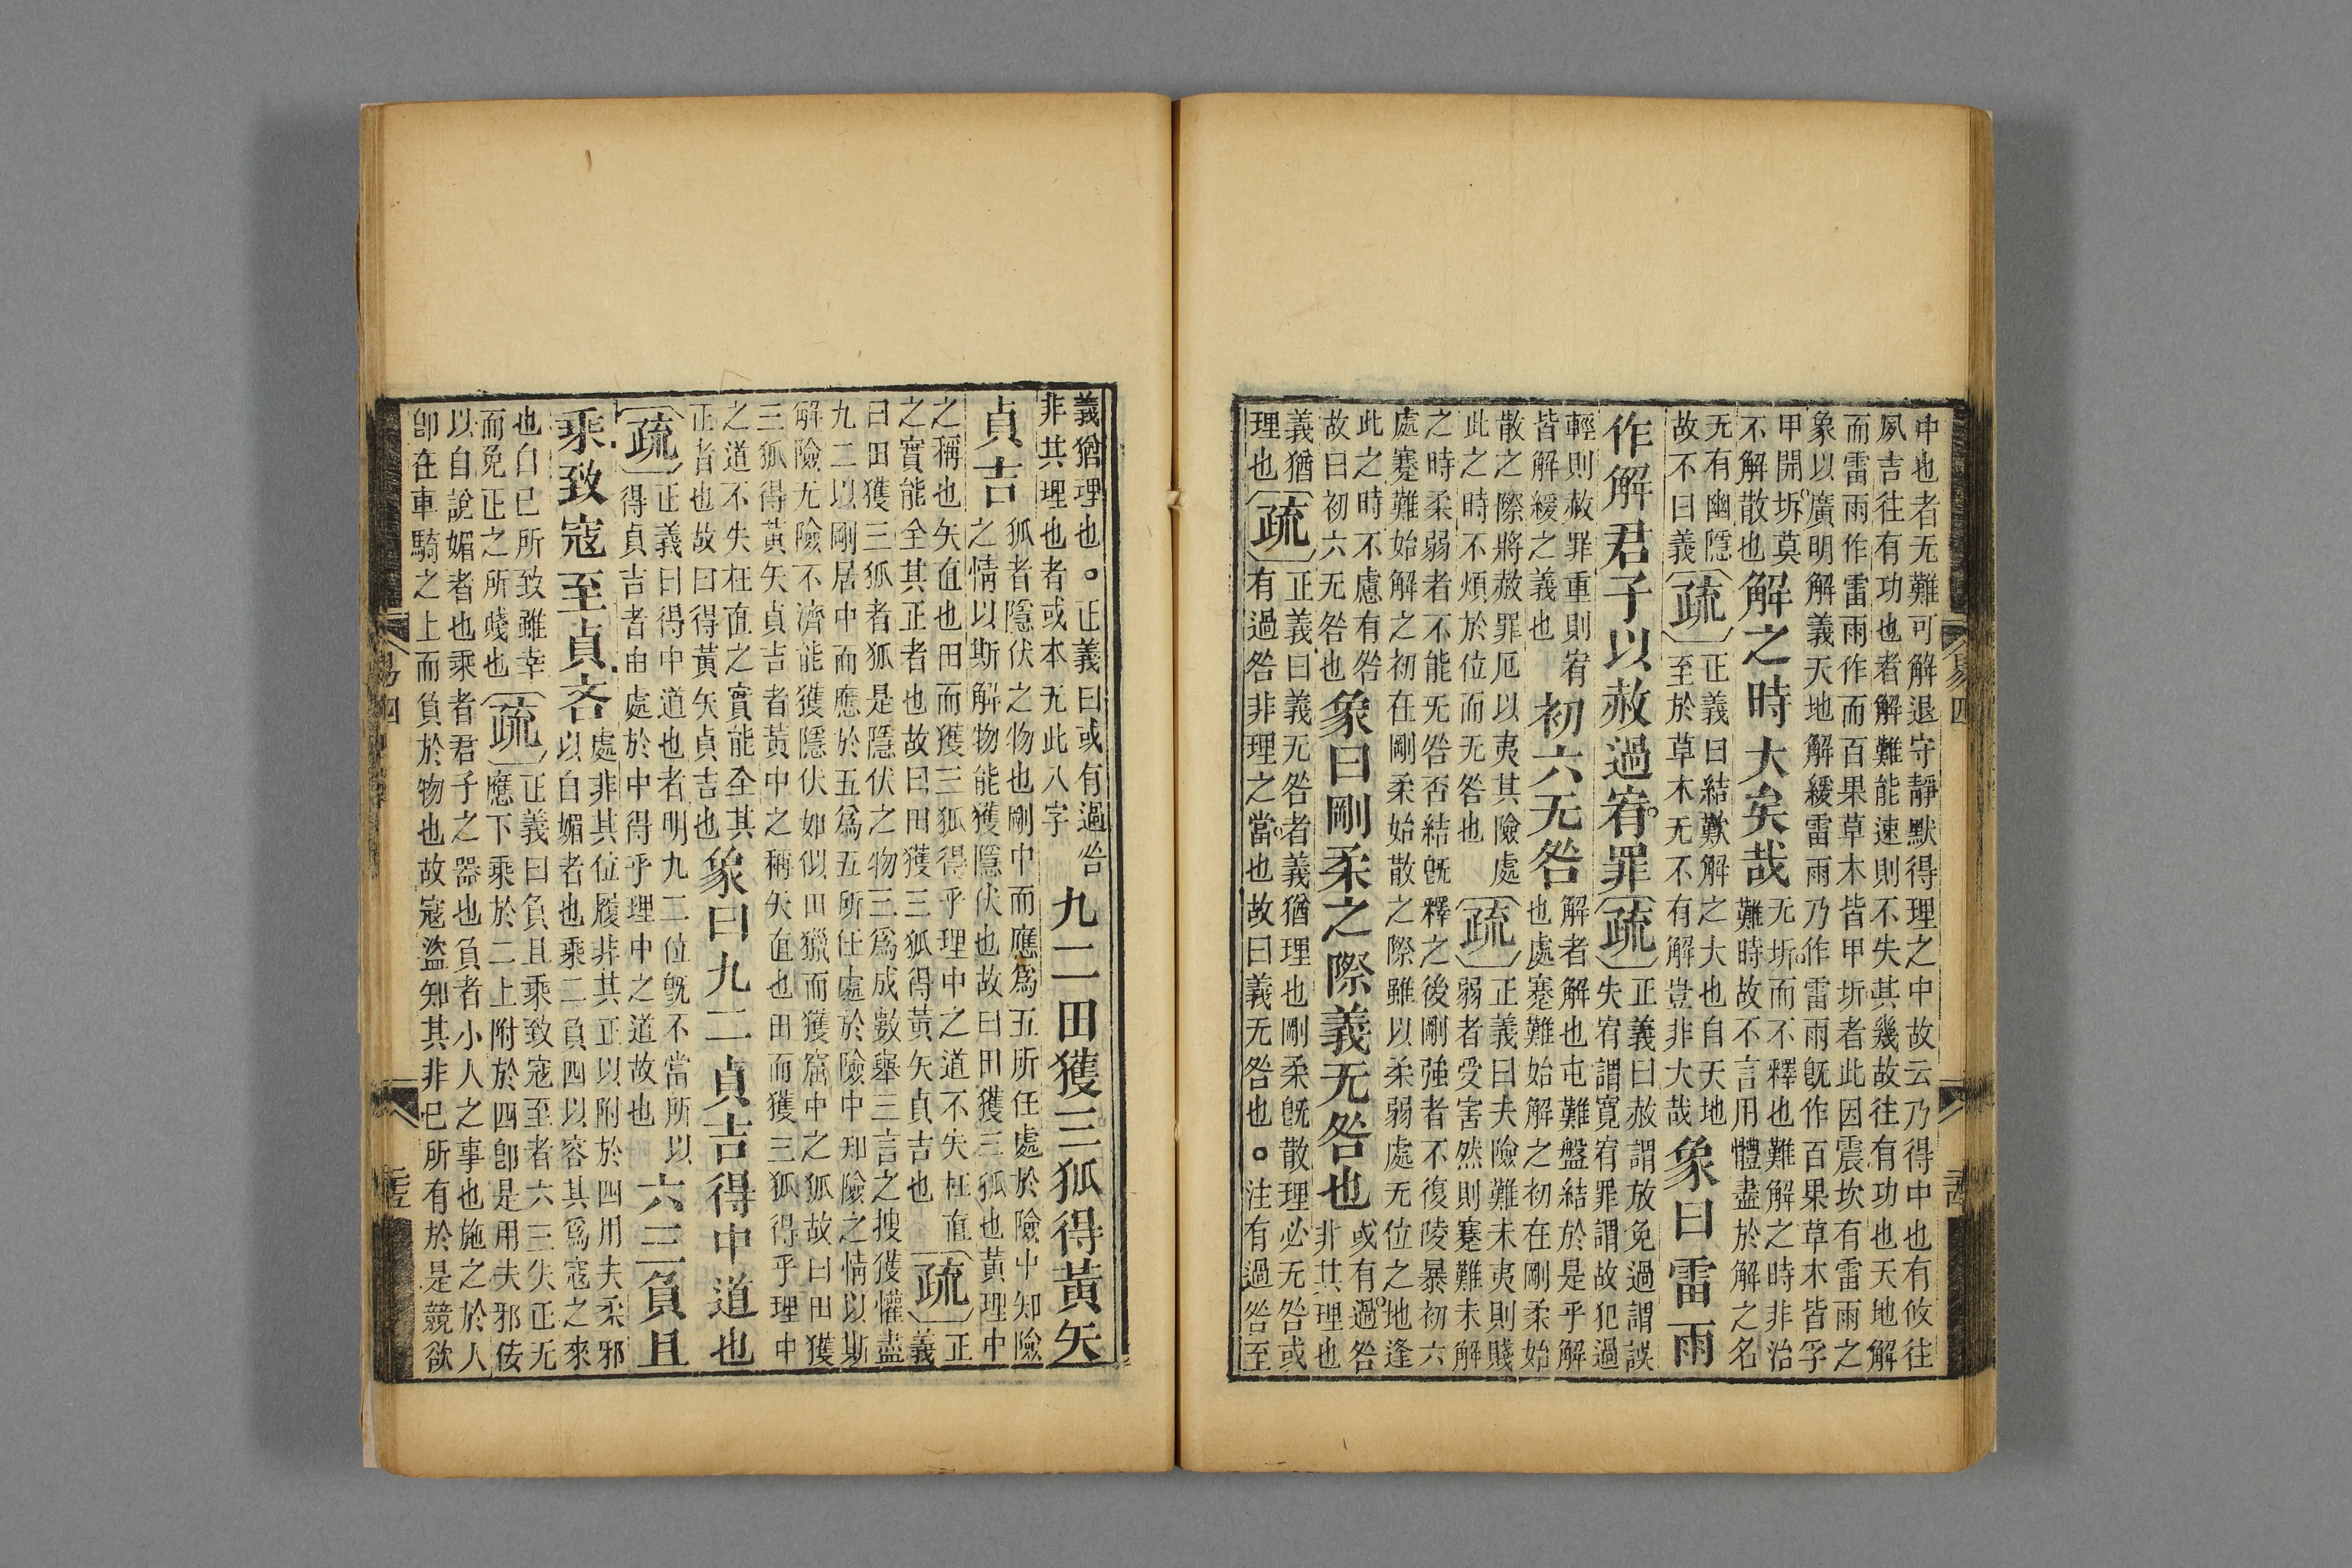 中也者无難可解退守靜默得理之中故云乃得中也有攸往
夙吉往有功也者解難能速則不失其幾故往有功也天地解
而雷雨作雷雨作而百果草木皆甲坼者此因震坎有雷雨之
象以廣明解義天地解緩雷雨乃作雷雨旣作百果草木皆孚
甲開坼莫
不解散也
解之時大矣哉
无坼而不釋也難解之時非治
難時故不言用體盡於解之名
无有幽隱
故不曰義
疏
正義曰結歎解之大也自天地
至於草木无不有解豈非大哉
象曰雷雨
作解君子以赦過宥罪
疏
正義曰赦謂放免過謂誤
失宥謂寬宥罪謂故犯過
輕則赦罪重則宥
皆解緩之義也
初六无咎
解者解也屯難盤結於是乎解
也處蹇難始解之初在剛柔始
散之際將赦罪厄以夷其險處
此之時不煩於位而无咎也
疏
正義曰夫險難未夷則賤
弱者受害然則蹇難未解
之時柔弱者不能无咎否結旣釋之後剛強者不復陵暴初六
處蹇難始解之初在剛柔始散之際雖以柔弱處无位之地逢
此之時不慮有咎
故曰初六无咎也
象曰剛柔之際義无咎也
或有過咎
非其理也
義猶
理也
疏
正義曰義无咎者義猶理也剛柔旣散理必无咎或
有過咎非理之當也故曰義无咎也。注有過咎至
易四
義猶理也。正義曰或有過咎
非其理也者或本无此八字
九二田獲三狐得黃矢
貞吉
狐者隱伏之物也剛中而應爲五所任處於險中知險
之情以斯解物能獲隱伏也故曰田獲三狐也黃理中
之稱也矢直也田而獲三狐得乎理中之道不失枉直
之實能全其正者也故曰田獲三狐得黃矢貞吉也
疏
正
義
曰田獲三狐者狐是隱伏之物三爲成數舉三言之搜獲懽盡
九二以剛居中而應於五爲五所任處於險中知險之情以斯
解險无險不濟能獲隱伏如似田獵而獲窟中之狐故曰田獲
三狐得黃矢貞吉者黃中之稱矢直也田而獲三狐得乎理中
之道不失枉直之實能全其
正者也故曰得黃矢貞吉也
象曰九二貞吉得中道也
疏
正義曰得中道也者明九二位旣不當所以
得貞吉者由處於中得乎理中之道故也
六三負且
乘致寇至貞吝
處非其位履非其正以附於四用夫柔邪
以自媚者也乘二負四以容其爲寇之來
也自己所致雖幸
而免正之所賤也
疏
正義曰負且乘致寇至者六三失正无
應下乘於二上附於四卽是用夫邪佞
以自說媚者也乘者君子之器也負者小人之事也施之於人
卽在車騎之上而負於物也故寇盜知其非己所有於是競欲